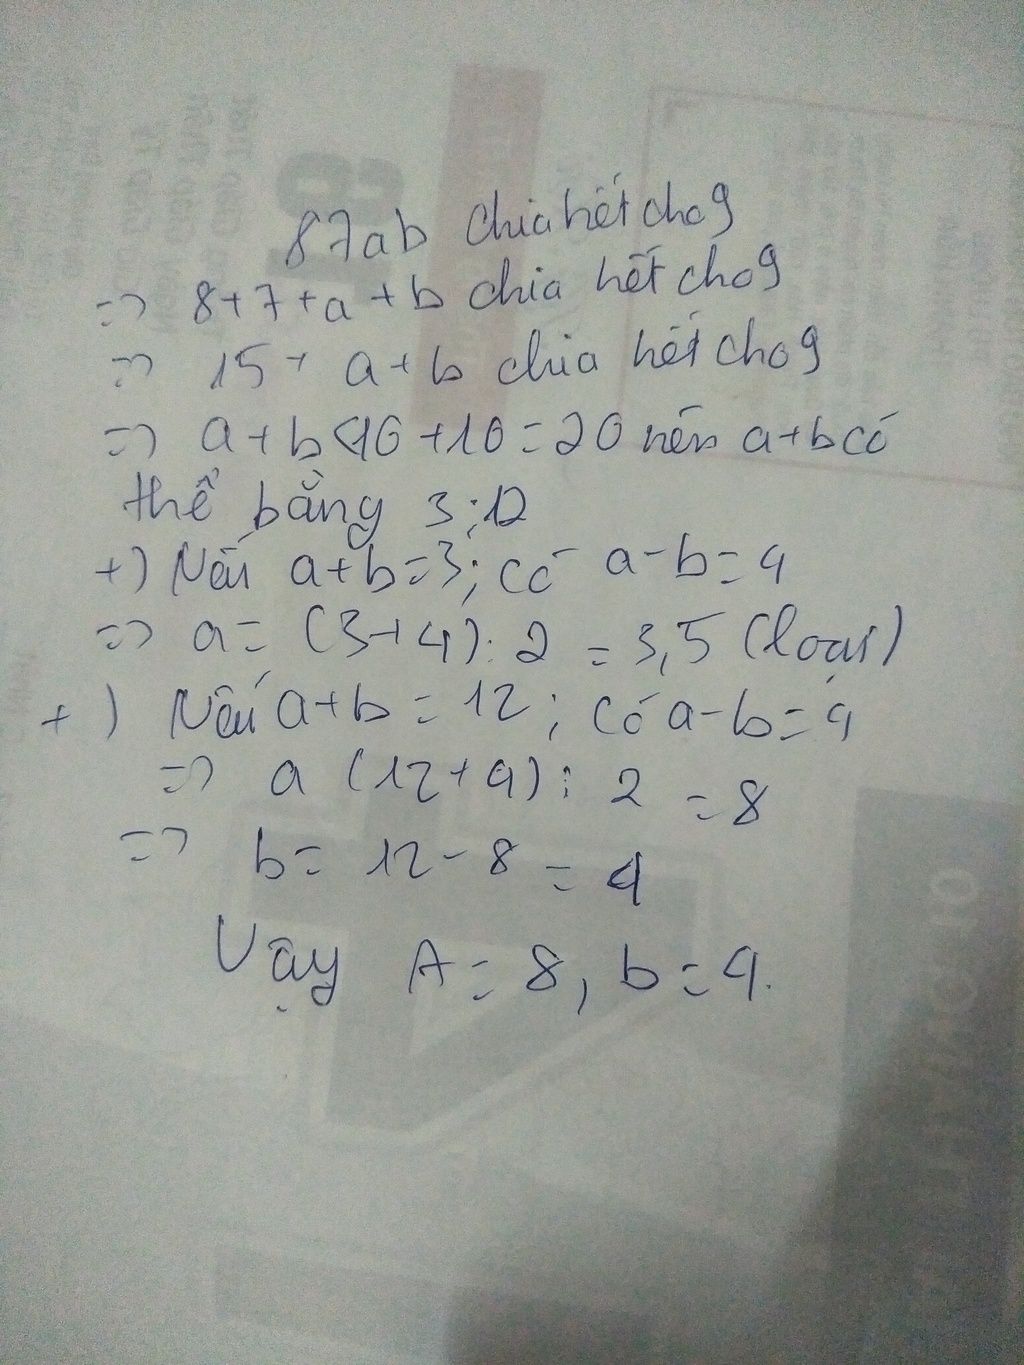 87ab chia hết cho 9
=> 8+7+a+b chia hết cho 9
=> 15+ a+b chia hết cho 9
=> a+b<10+10=20 nên a+b có
thể bằng 3;12
+) Nếu a+b=3; có a-b=4
=> a= (3+4):2 =3,5 (loại)
+) Nếu a+b=12; có a-b=4
=> a (12+4): 2 =8
=> b= 12-8 =4
Vậy A=8, b=4.